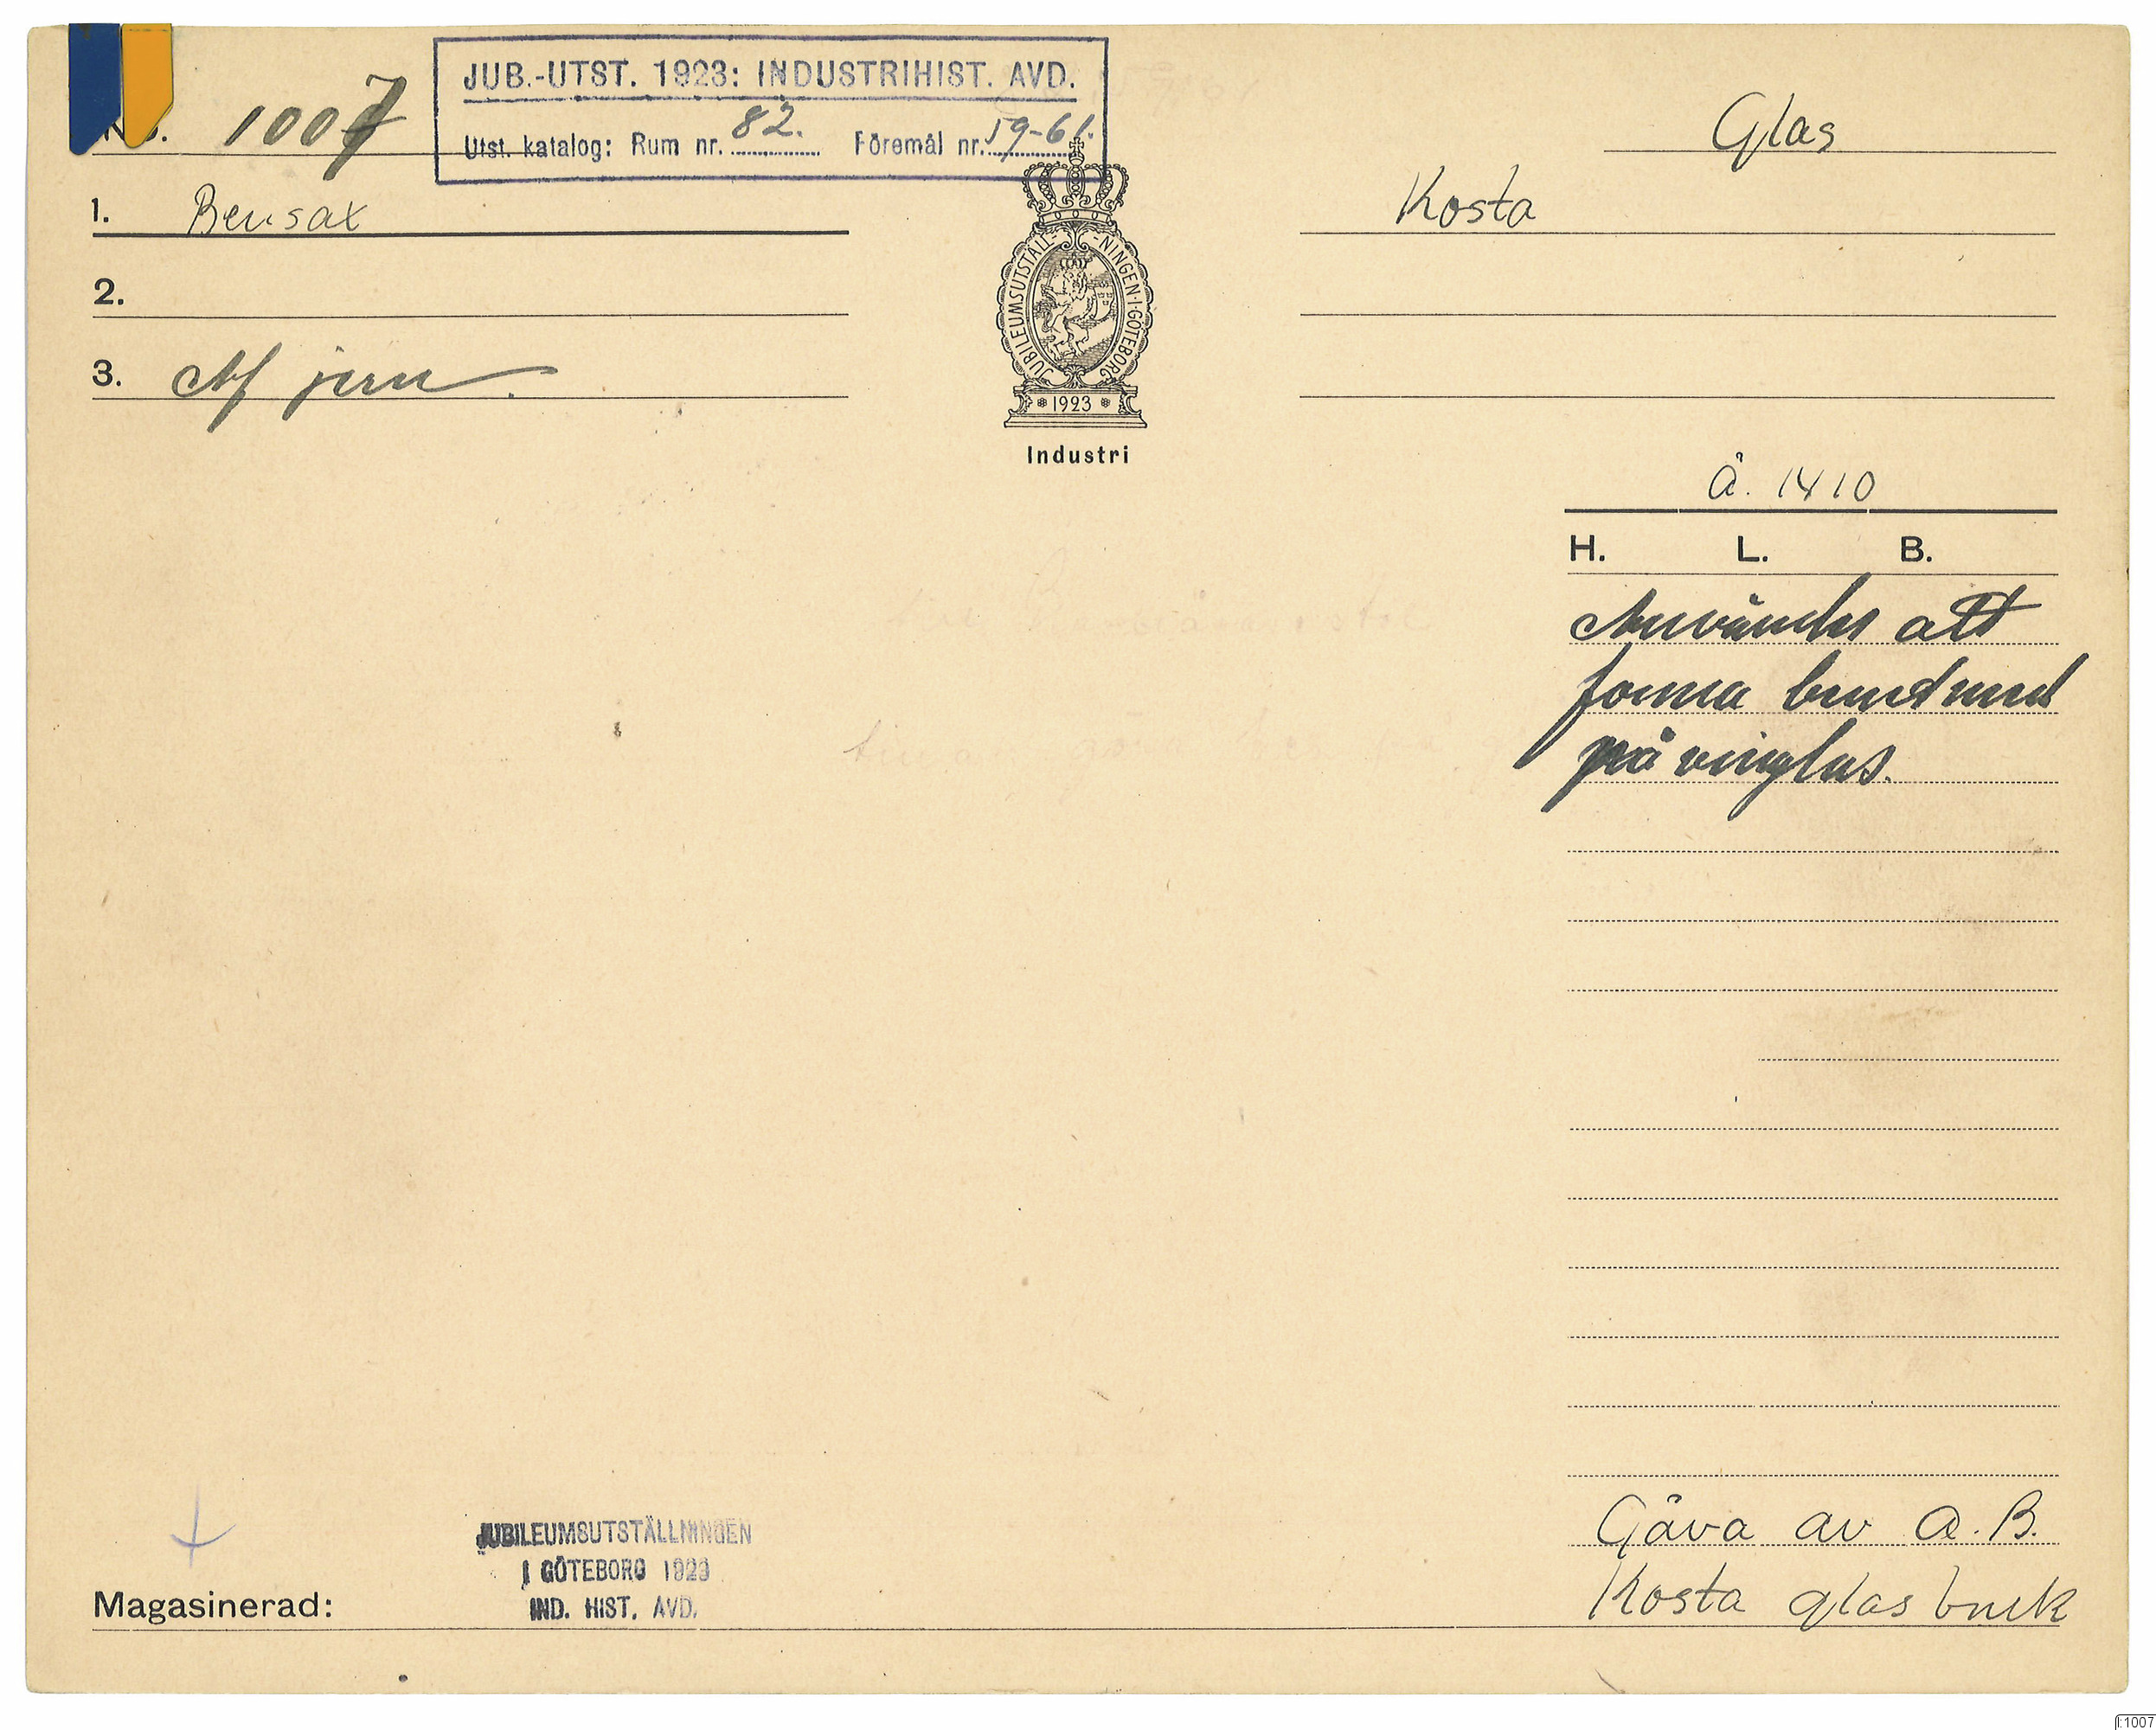 JUB.-UTST. 1923: INDUSTRIHIST. AVD.
1007
Utst. katalog: Rum nr. 82. Föremål nr. 59-61.
Glas
1. Bensax
Kosta
2.
3. Af jern.
JUBILEUMSUTSTÄLL-NINGEN·I·GÖTEBORG
1923
Industri
Å. 1410
H. L. B.
Användes att
forma
på vinglas.
Gåva av A.B.
Kosta glasbruk
JUBILEUMSUTSTÄLLNINGEN
I GÖTEBORG 1923
IND. HIST. AVD.
Magasinerad:
I:1007